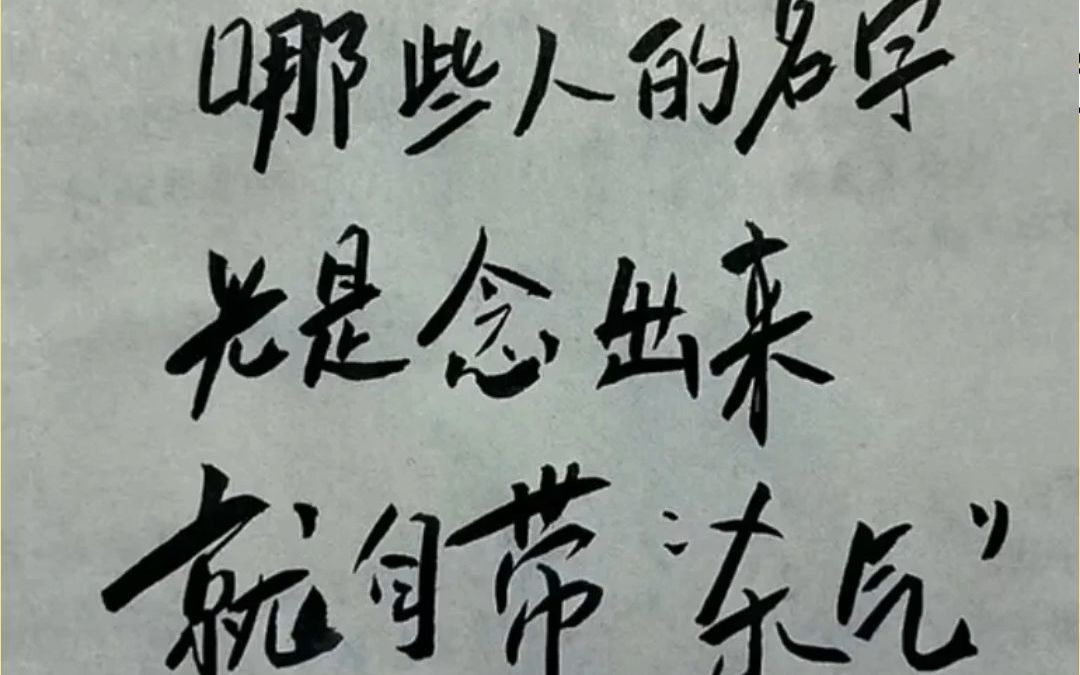 哪些人的名字
光是念出来
就自带“杀气”